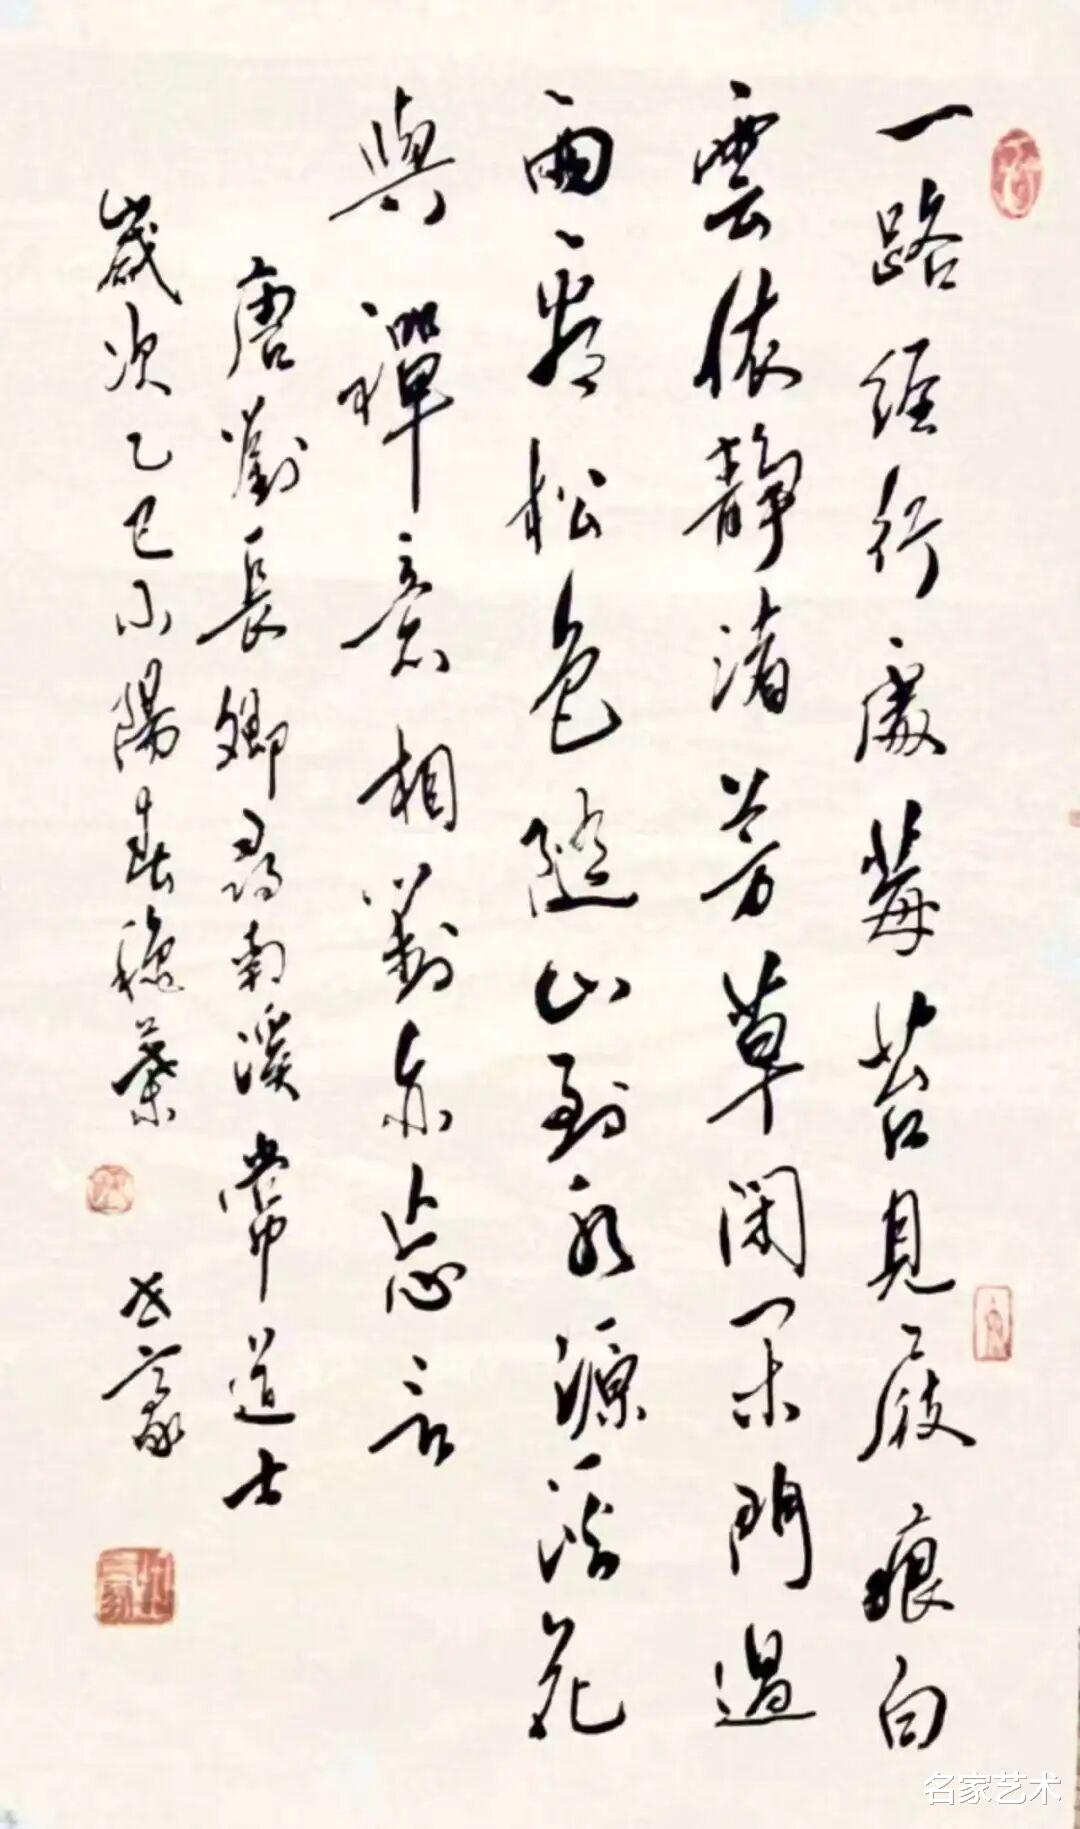 一路經行處莓苔見屐痕白
雲依靜渚芳草閉閑門過
雨看松色隨山到水源溪花
與禪意相對亦忘言
唐劉長卿尋南溪常道士
歲次乙巳小陽春
名家艺术